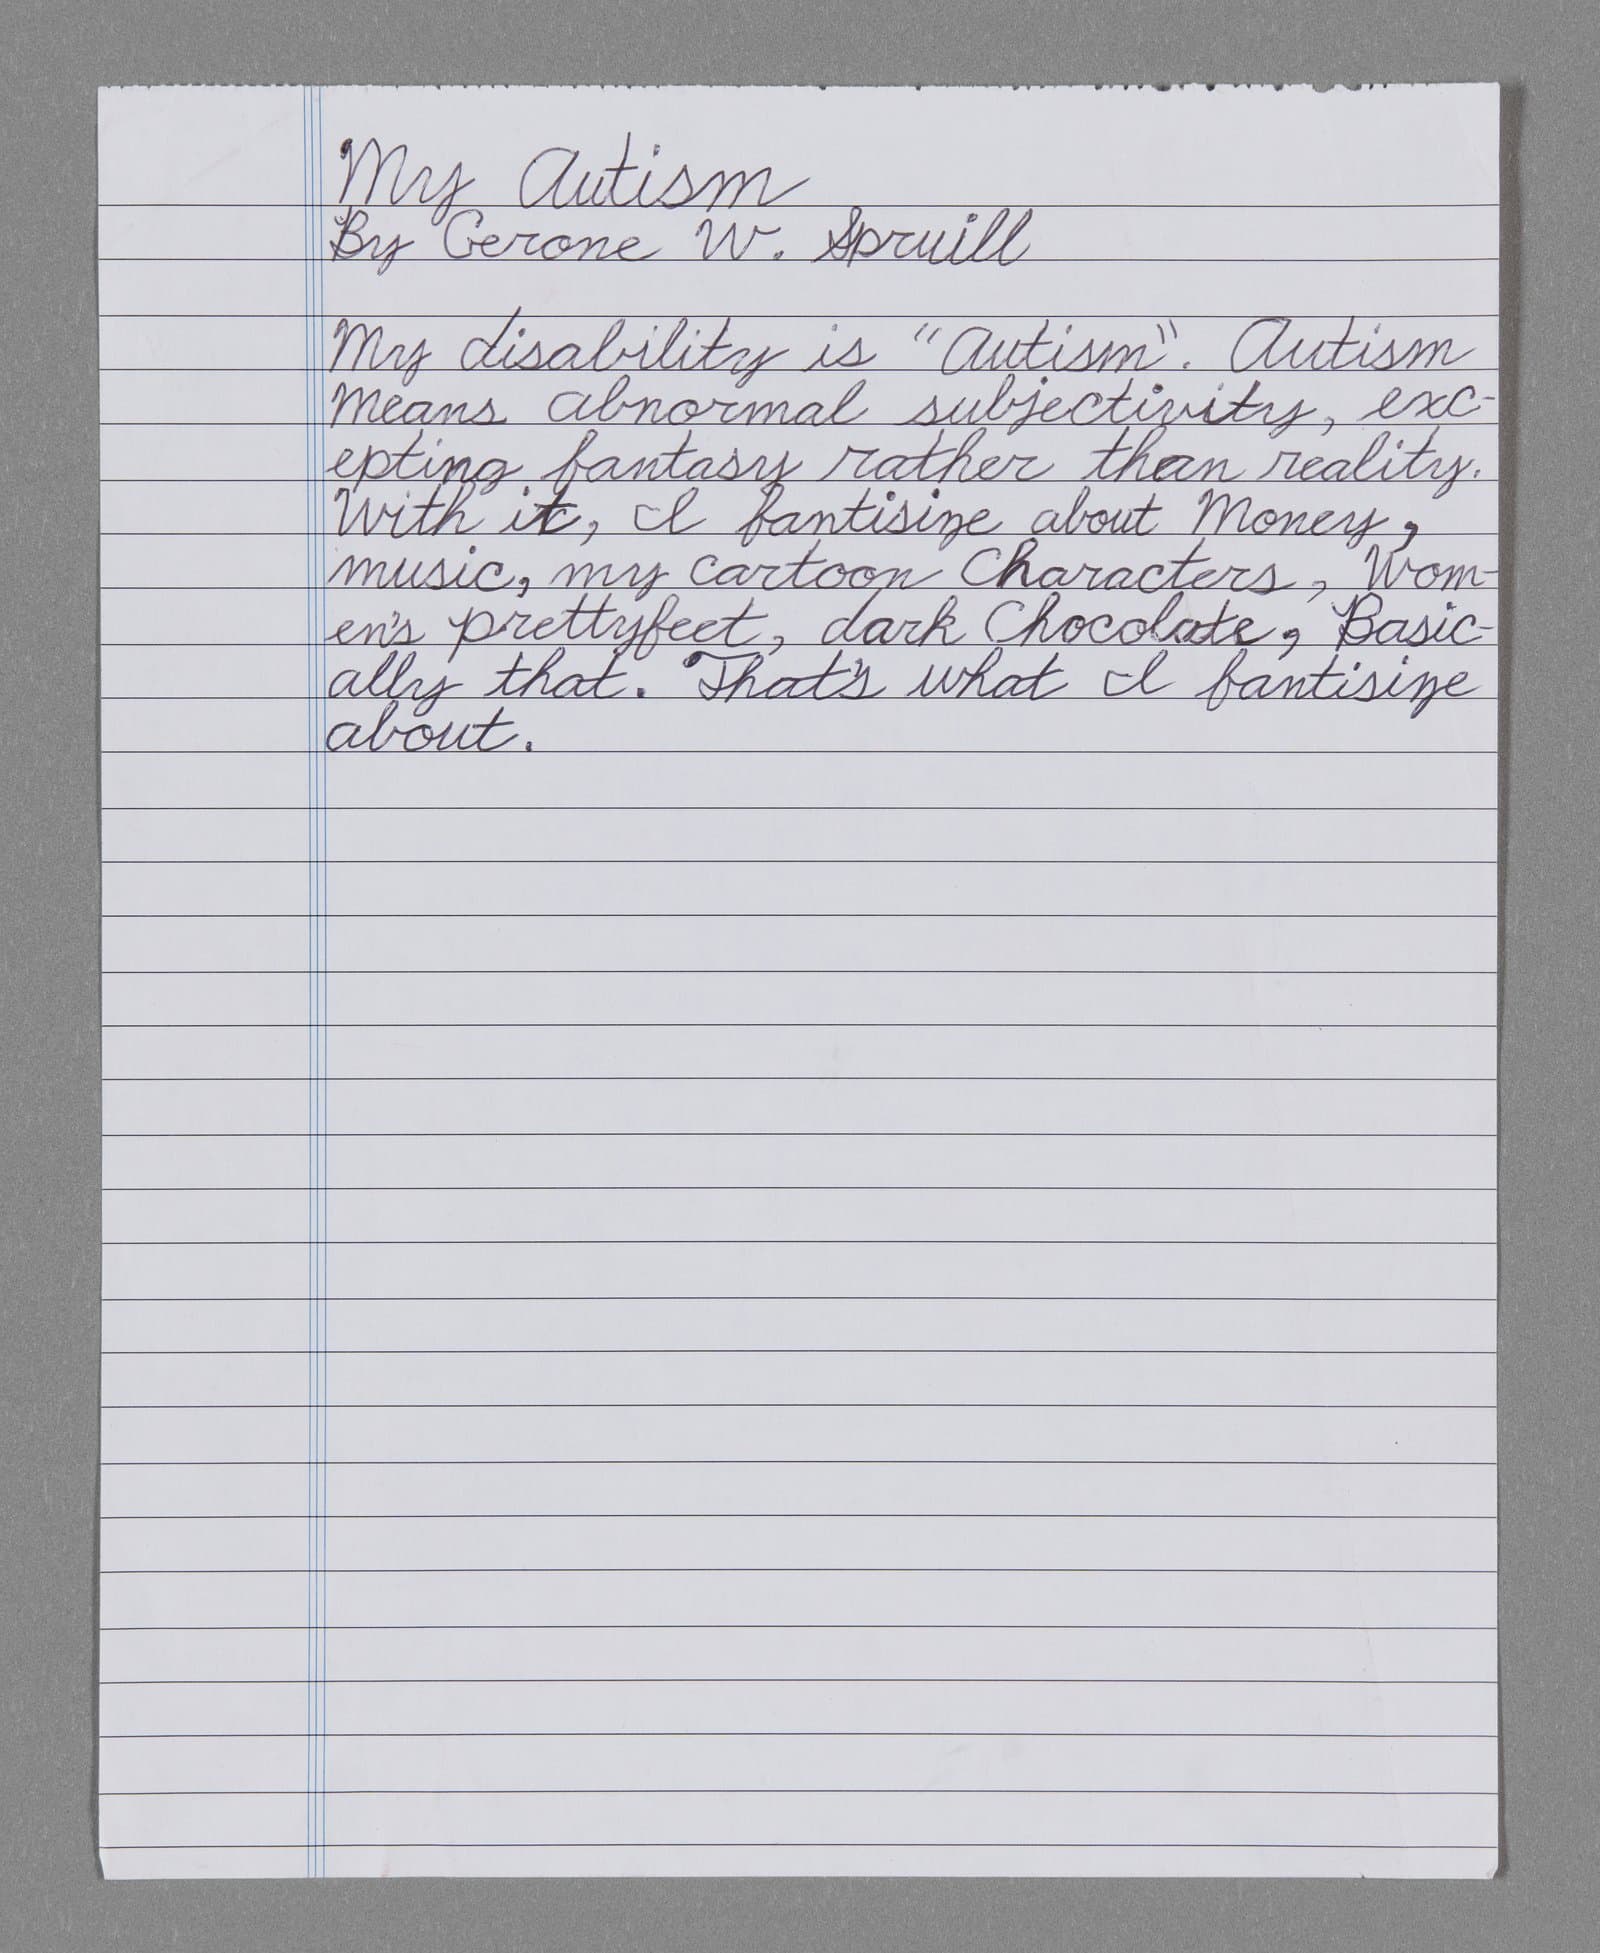 My Autism
By Gerone W. Spruill
My disability is "Autism". Autism
means abnormal subjectivity, exc-
epting fantasy rather than reality.
With it, I fantisize about Money,
music, my cartoon Characters, Wom-
en's prettyfeet, dark Chocolate, Basic-
ally that. That's what I fantisize
about.